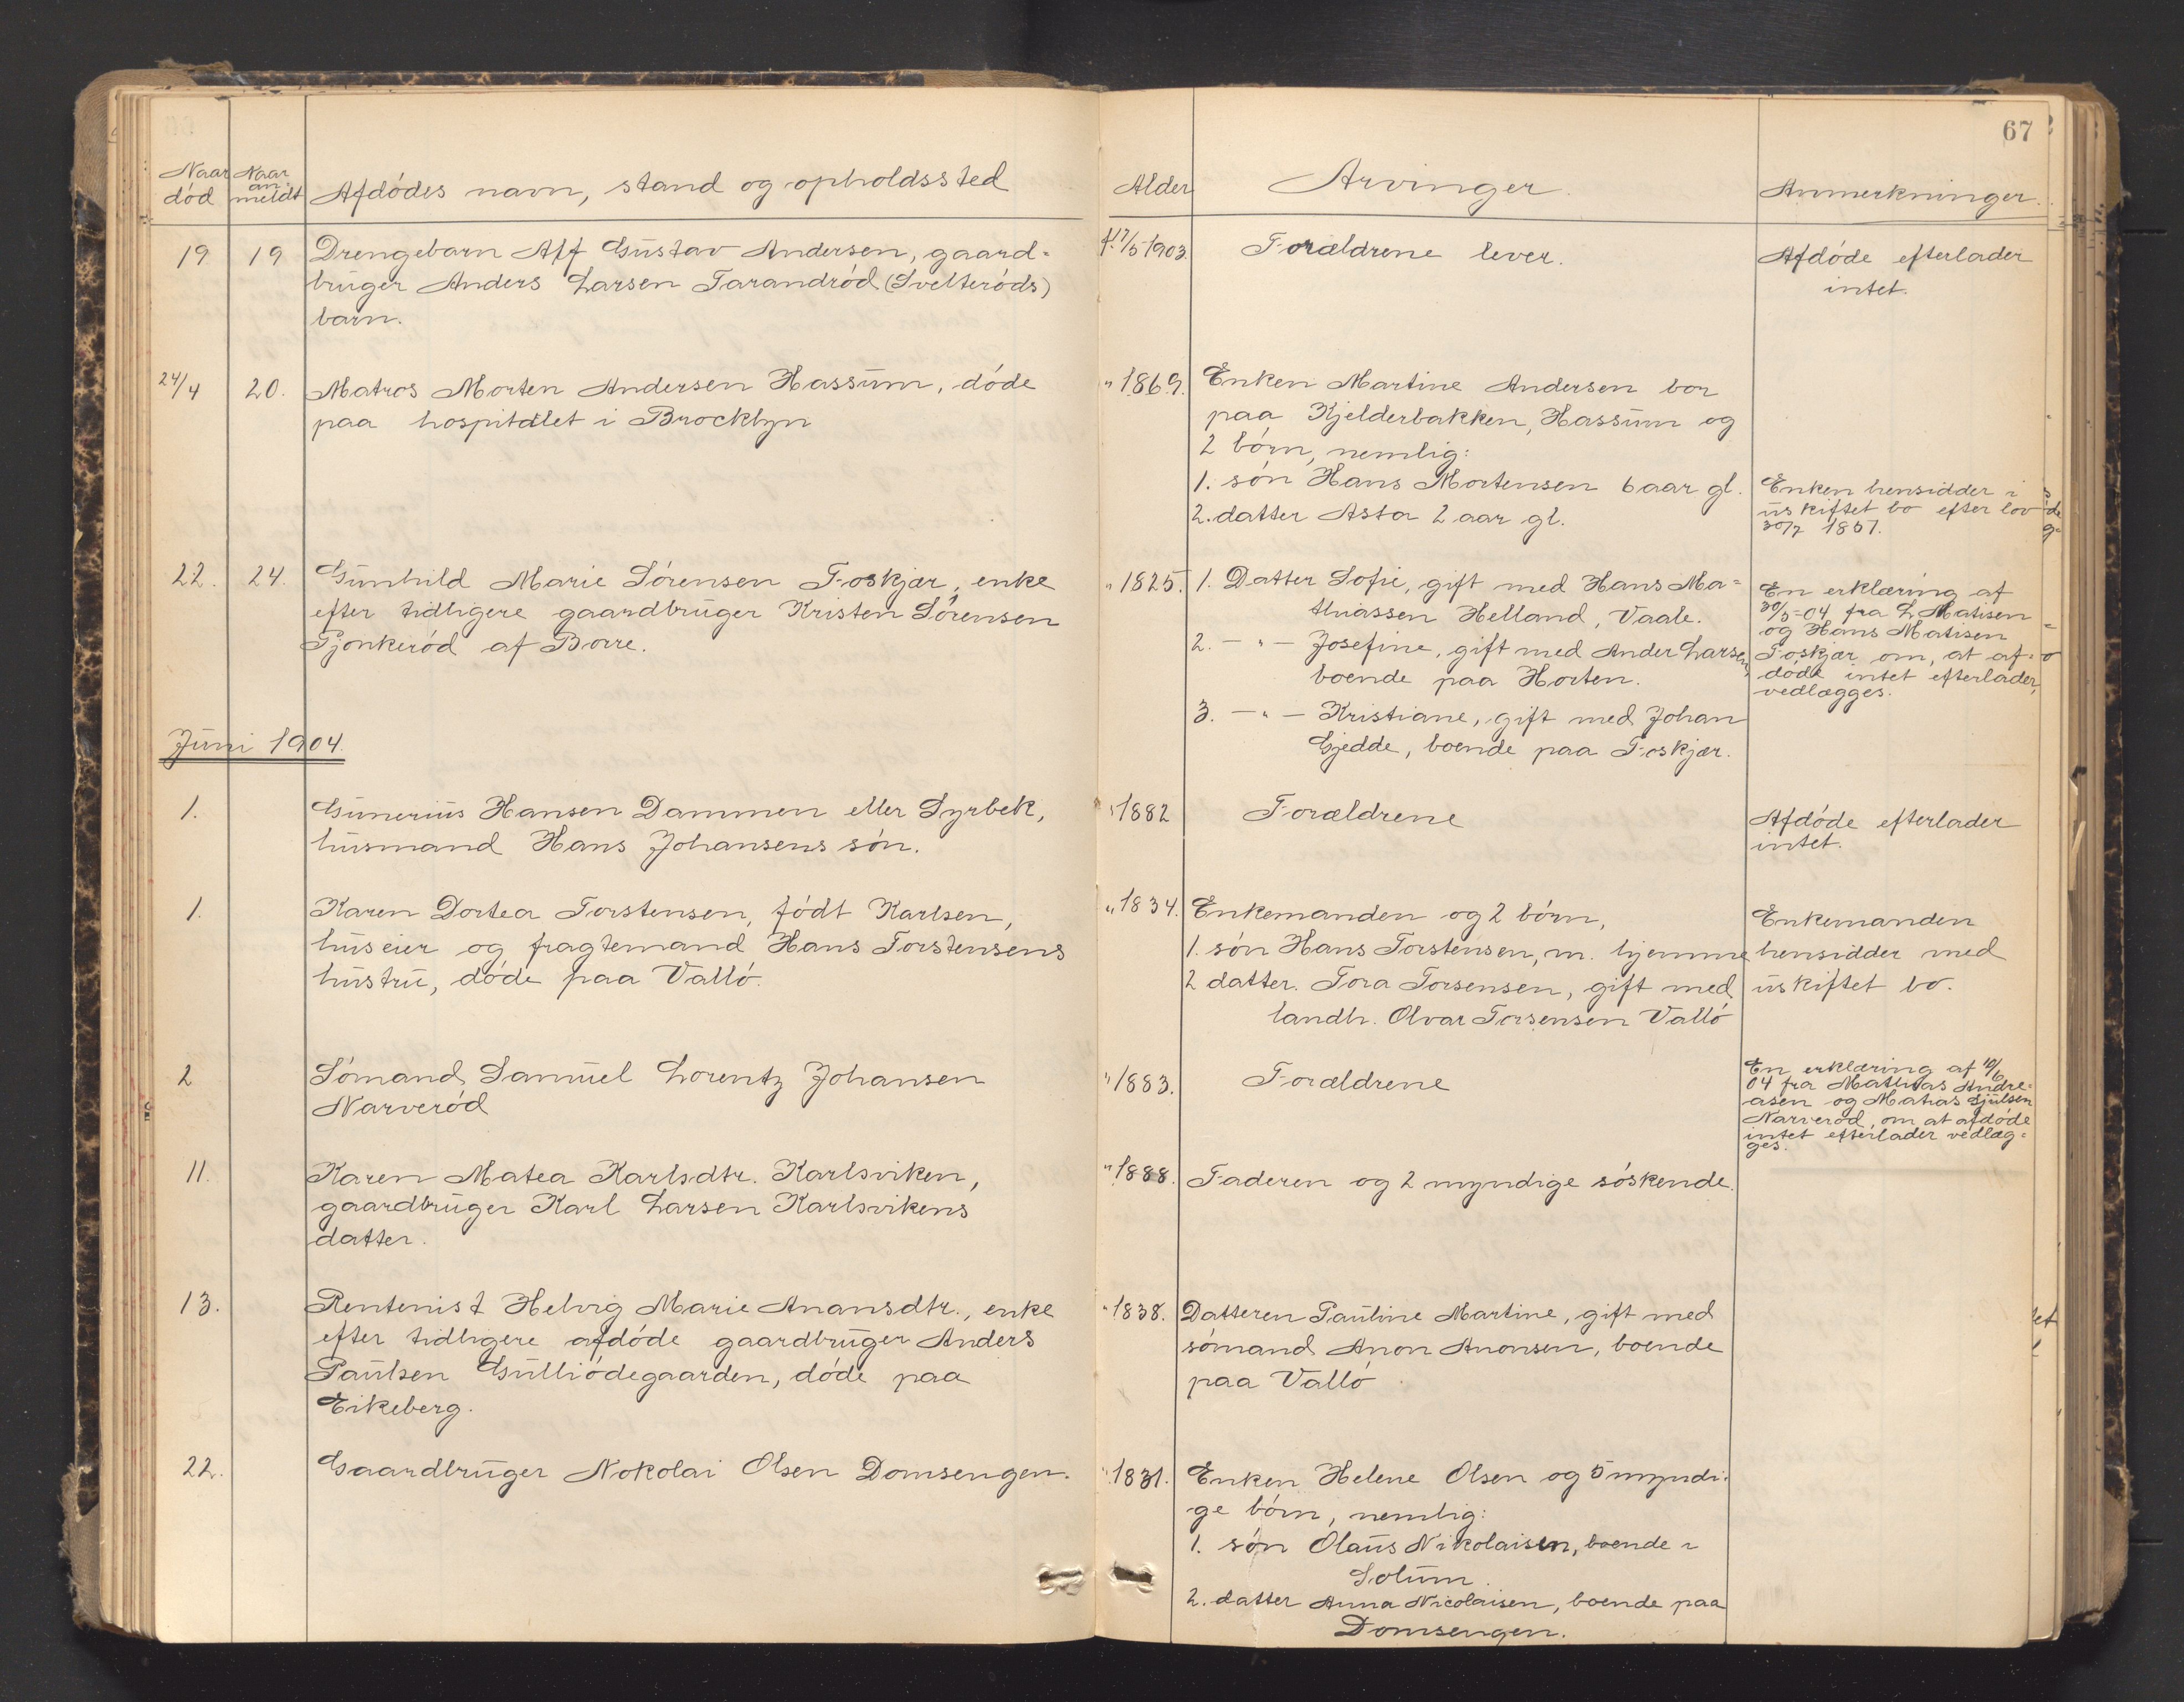 67
Naar død
Naar an- meldt
Afdødes navn, stand og opholdssted
Alder
Arvinger.
Anmerkninger.
19 19 Drengebarn Alf Gustav Andersen, gaard-
bruger Anders Larsen Tarandrød (Svelterøds)
barn.
f. 17/5 1903. Forældrene lever.
Afdøde efterlader
intet.
24/4 20. Matros Morten Andersen Hassum, døde
paa hospitalet i Brocklyn
" 1869. Enken Martine Andersen bor
paa Kjelderbakken, Hassum og
2 børn, nemlig:
1. søn Hans Mortensen 6 aar gl.
2. datter Asta 2 aar gl.
Enken hensidder i
uskiftet bo efter lov
30/7 1851.
22. 24. Gunhild Marie Sørensen Foskjær, enke
efter tidligere gaardbruger Kristen Sørensen
Pjonkerød af Borre.
" 1825. 1. Datter Sofie, gift med Hans Ma-
thiassen Helland, Vaale.
2. — " — Josefine, gift med Ander Larsen,
boende paa Horten.
3. — " — Kristiane, gift med Johan
Gjedde, boende paa Foskjær.
En erklæring af
30/5-04 fra L. Matisen
og Hans Matisen
Foskjær om, at af-
døde intet efterlader,
vedlægges.
Juni 1904.
1. Gunerius Hansen Dammen eller Syrbek,
husmand Hans Johansens søn.
" 1882 Forældrene
Afdøde efterlader
intet.
1. Karen Dortea Torstensen, født Karlsen,
huseier og fragtemand Hans Torstensens
hustru, døde paa Vallø.
" 1834. Enkemanden og 2 børn,
1. søn Hans Torstensen, m. hjemme
2 datter. Tora Torsensen, gift med
landh. Olvar Torsensen Vallø
Enkemanden
hensidder med
uskiftet bo.
2 Sømand Samuel Lorentz Johansen
Narverød
" 1883. Forældrene
En erklæring af 10/6
04 fra Mathias Andre-
asen og Matias Gjulsen
Narverød, om at afdøde
intet efterlader vedlæg-
ges.
11. Karen Matea Karlsdtr. Karlsviken,
gaardbruger Karl Larsen Karlsvikens
datter.
" 1888. Faderen og 2 myndige søskende.
13. Rentenist Helvig Marie Anansdtr., enke
efter tidligere afdøde gaardbruger Anders
Paulsen Gulliødegaarden, døde paa
Eikeberg.
" 1838. Datteren Pauline Martine, gift med
sømand Anon Anonsen, boende
paa Vallø
22. Gaardbruger Nokolai Olsen Domsengen.
" 1831. Enken Helene Olsen og 5 myndi-
ge børn, nemlig:
1. søn Olaus Nikolaisen, boende i
Solum.
2. datter Anna Nicolaisen, boende paa
Domsengen.